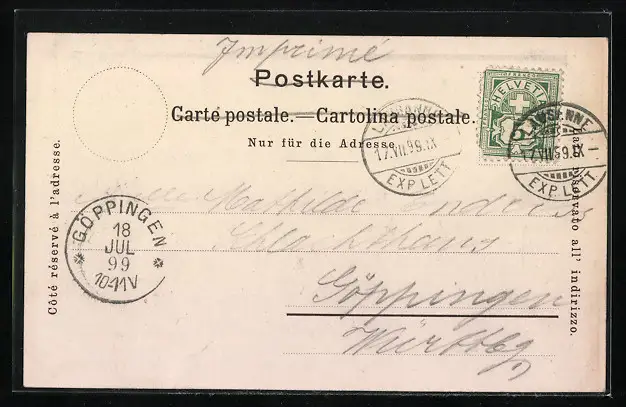 Imprimé
Postkarte.
Carte postale. — Cartolina postale.
Nur für die Adresse
HELVETIA
LAUSANNE
17.VII.99.IX
EXP. LETT.
LAUSANNE
17.VII.99.IX
EXP. LETT.
Côté réservé à l'adresse.
Lato riservato all' indirizzo.
Mathilde
Schlachthaus
Göppingen
Württbg
GÖPPINGEN
18
JUL
99
10-11V